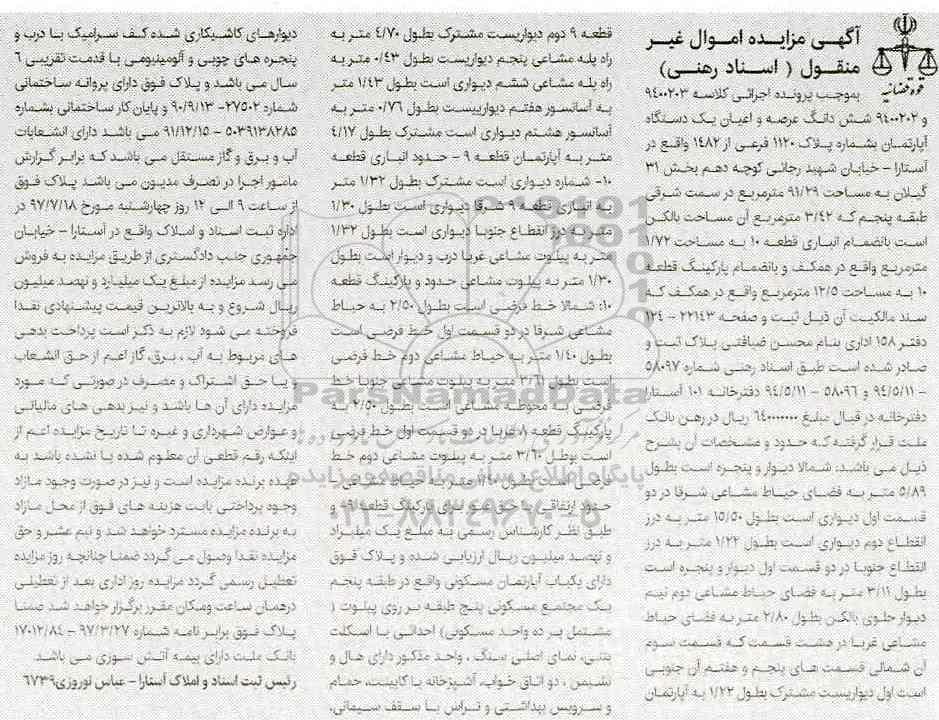 آگهی مزایده اموال غیر
منقول ( اسناد رهنی)
قوه قضائیه
بموجب پرونده اجرائی کلاسه ۹۴۰۰۲۰۳
و ۹۴۰۰۲۰۲ شش دانگ عرصه و اعیان یک دستگاه
آپارتمان بشماره پلاک ۱۱۲۰ فرعی از ۱۴۸۲ واقع در
آستارا – خیابان شهید رجائی کوچه دهم بخش ۳۱
گیلان به مساحت ۹۱/۲۹ مترمربع در سمت شرقی
طبقه پنجم که ۳/۴۲ مترمربع آن مساحت بالکن
است بانضمام انباری قطعه ۱۰ به مساحت ۱/۷۲
مترمربع واقع در همکف و بانضمام پارکینگ قطعه
۱۰ به مساحت ۱۲/۵ مترمربع واقع در همکف که
سند مالکیت آن ذیل ثبت و صفحه ۲۲۱۴۳ – ۱۲۴
دفتر ۱۵۸ اداری بنام محسن ضیافتی پلاک ثبت و
صادر شده است طبق اسناد رهنی شماره ۵۸۰۹۷
– ۹۴/۵/۱۱ و ۵۸۰۹۶ – ۹۴/۵/۱۱ دفترخانه ۱۰۱ آستارا
دفترخانه در قبال مبلغ ۶۴۰۰۰۰۰۰۰ ریال در رهن بانک
ملت قرار گرفته که حدود و مشخصات آن بشرح
ذیل می باشد: شمالا دیوار و پنجره است بطول
۵/۸۹ متر به فضای حیاط مشاعی شرقا در دو
قسمت اول دیواری است بطول ۱۵/۵۰ متر به درز
انقطاع دوم دیواری است بطول ۱/۲۲ متر به درز
انقطاع جنوبا در دو قسمت اول دیوار و پنجره است
بطول ۳/۱۱ متر به فضای حیاط مشاعی دوم نیم
دیوار جلوی بالکن بطول ۲/۸۰ متر به فضای حیاط
مشاعی غربا در هشت قسمت که قسمت سوم
آن شمالی قسمت های پنجم و هفتم آن جنوبی
است اول دیواریست مشترک بطول ۱/۲۲ به آپارتمان
قطعه ۹ دوم دیواریست مشترک بطول ۴/۷۰ متر به
راه پله مشاعی پنجم دیواریست بطول ۰/۴۳ متر به
راه پله مشاعی ششم دیواری است بطول ۱/۴۳ متر
به آسانسور هفتم دیواریست بطول ۰/۷۶ متر به
آسانسور هشتم دیواری است مشترک بطول ۴/۱۷
متر به آپارتمان قطعه ۹ – حدود انباری قطعه
۱۰- شماره دیواری است مشترک بطول ۱/۳۲ متر
به انباری قطعه ۹ شرقا دیواری است بطول ۱/۳۰
متر به درز انقطاع جنوبا دیواری است بطول ۱/۳۲
متر به پیلوت مشاعی غربا درب و دیوار است بطول
۱/۳۰ متر به پیلوت مشاعی حدود و پارکینگ قطعه
۱۰: شمالا خط فرضی است بطول ۲/۵۰ به حیاط
مشاعی شرقا در دو قسمت اول خط فرضی است
بطول ۱/۴۰ متر به حیاط مشاعی دوم خط فرضی
است بطول ۳/۶۱ متر به پیلوت مشاعی جنوبا خط
فرضی به محوطه مشاعی است بطول ۲/۵۰ به
پارکینگ قطعه ۸ غربا در دو قسمت اول خط فرضی
است بوطل ۳/۶۰ متر به پیلوت مشاعی دوم خط
فرضی است بطول ۱/۴۰ متر به حیاط مشاعی
حدود ارتفاقی با حق عبور برای پارکینگ قطعه ۸ و
طبق نظر کارشناس رسمی به مبلغ یک میلیارد
و نهصد میلیون ریال ارزیابی شده و پلاک فوق
دارای یکباب آپارتمان مسکونی واقع در طبقه پنجم
یک مجتمع مسکونی پنج طبقه بر روی پیلوت (
مشتمل بر ده واحد مسکونی) احداثی با اسکلت
بتنی، نمای اصلی سنگ ، واحد مذکور دارای هال و
نشیمن ، دو اتاق خواب، آشپزخانه با کابینت، حمام
و سرویس بهداشتی و تراس با سقف سیمانی،
دیوارهای کاشیکاری شده کف سرامیک با درب و
پنجره های چوبی و آلومینیومی با قدمت تقریبی ۶
سال می باشد و پلاک فوق دارای پروانه ساختمانی
شماره ۲۷۵۰۲- ۹۰/۹/۱۳ و پایان کار ساختمانی بشماره
۵۰۳۹۱۳۸۲۸۵ – ۹۱/۱۲/۱۵ می باشد دارای انشعابات
آب و برق و گاز مستقل می باشد که برابر گزارش
مامور اجرا در تصرف مدیون می باشد پلاک فوق
از ساعت ۹ الی ۱۲ روز چهارشنبه مورخ ۹۷/۷/۱۸ در
اداره ثبت اسناد و املاک واقع در آستارا – خیابان
جمهوری جنب دادگستری از طریق مزایده به فروش
می رسد مزایده از مبلغ یک میلیارد و نهصد میلیون
ریال شروع و به بالاترین قیمت پیشنهادی نقدا
فروخته می شود لازم به ذکر است پرداخت بدهی
های مربوط به آب ، برق، گاز اعم از حق انشعاب
و یا حق اشتراک و مصرف در صورتی که مورد
مزایده دارای آن ها باشد و نیز بدهی های مالیاتی
و عوارض شهرداری و غیره تا تاریخ مزایده اعم از
اینکه رقم قطعی آن معلوم شده یا نشده باشد به
عهده برنده مزایده است و نیز در صورت وجود مازاد
وجوه پرداختی بابت هزینه های فوق از محل مازاد
به برنده مزایده مسترد خواهد شد و نیم عشر و حق
مزایده نقدا وصول می گردد ضمنا چنانچه روز مزایده
تعطیل رسمی گردد مزایده روز اداری بعد از تعطیلی
در همان ساعت ومکان مقرر برگزار خواهد شد ضمنا
پلاک فوق برابر نامه شماره ۹۷/۳/۲۷ – ۱۷۰۱۲/۸۴
بانک ملت دارای بیمه آتش سوزی می باشد.
رئیس ثبت اسناد و املاک آستارا – عباس نوروزی ۶۷۳۹
ParsNamadData
پایگاه اطلاع رسانی مناقصه و مزایده